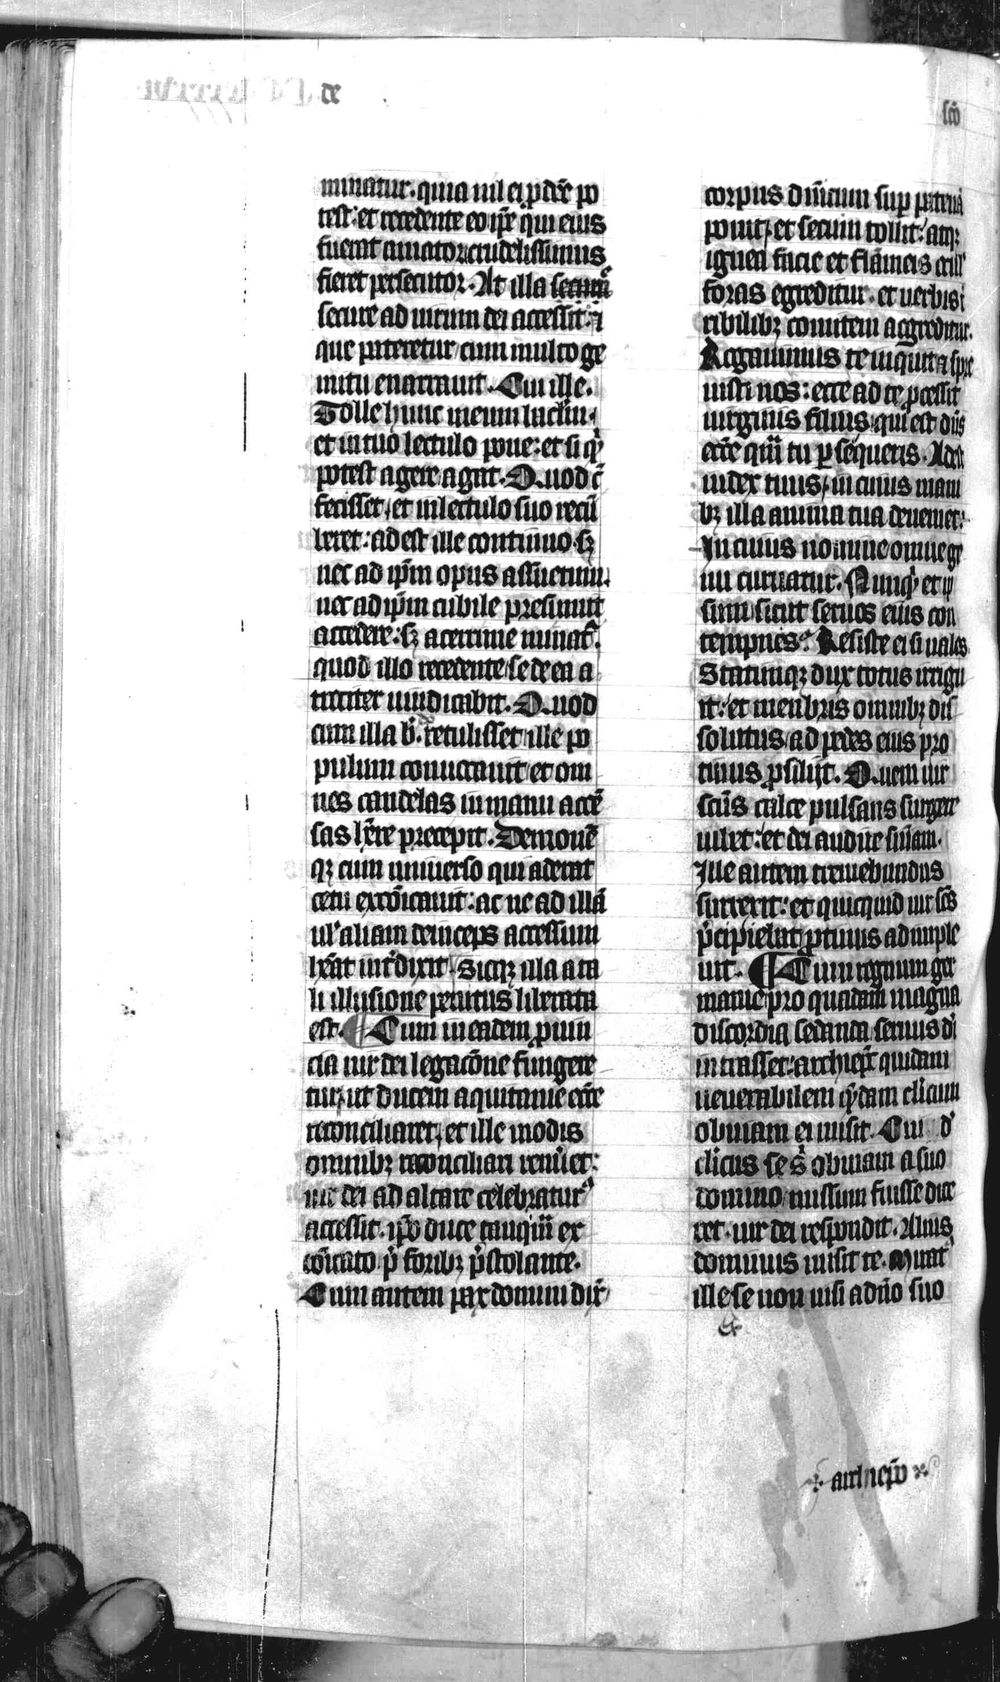 de
sco
minatur. quia nil ei pdēe po
test: et recedente eo ipē qui eius
fuerat amator crudelissimus
fieret persecutor. At illa
secure ad uirum dei accessit: ⁊
que pateretur cum multo ge
mitu enarrauit. Cui ille.
Tolle hunc meum baclm.
et in tuo lectulo pone: et si qͥ
potest agere agat. Quod cū
fecisset, et in lectulo suo recū
beret: adest ille continuo. sꝫ
nec ad ipm opus assuetum.
nec ad ipm cubile presumit
accedere: sꝫ acerrime minat᷑.
quod illo recedente se de ea a
trociter uindicabit. Quod
cum illa b. retulisset ille po
pulum conuocauit et om
nes candelas in manu accē
sas hr̄e precepit. Demonē
qꝫ cum uniuerso qui aderat
cetu excōicauit: ac ne ad illā
ul' aliam deinceps accessum
hēat int͛dixit. Sicqꝫ illa a ta
li illusione penitus liberata
est. ¶ Cum in eadem puin
cia uir dei legacōne fungere
tur, ut ducem aquitanie eccē
reconciliaret, et ille modis
omnibꝫ reconciliari renūet:
uir dei ad altare celebratur᷑
accessit. ipō duce tanquā ex
cōicato p̄ foribꝫ p̄stolante.
Cum autem pax domini dix͛
corpus dn̄icum sup patenā
ponit, et secum tollit: atqꝫ
ignea facie et flāmeis ocul'
foras egreditur. et uerbis t
ribilibꝫ comitem aggreditur.
Rogauimus te inquit ⁊ spre
uisti nos: ecce ad te pcessit
uirginis filius qui est dn̄s
eccē quā tu psequeris. Adest
iudex tuus, in cuius mani
bꝫ illa anima tua deueniet:
In cuius nomine omne ge
nu curuatur. Nunqͥd et ip
sum sicut seruos eius con
tempnes. Resiste ei si uales
Statimqꝫ dux totus irrigu
it: et menbris omnibꝫ dis
solutus ad pedes eius pro
tinus psiliit. Quem uir
scūs calce pulsans surgere
iubet: et dei audire sn̄iam.
Ille autem tremebundus
surrexit: et quicquid uir scūs
p̄cipiebat ptinus adimple
uit. ¶ Cum regnum ger
manie pro quadam magna
discordia sedanda seruus di
intrasset: archiep̄c quidam
uenerabilem qͥdam clicum
obuiam ei misit. Cui d
clicus se s obuiam a suo
domino missum fuisse dice
ret. uir dei respondit. Alius
dominus misit te. Mirat᷑
ille se non nisi a dn̄o suo
archiep̄o